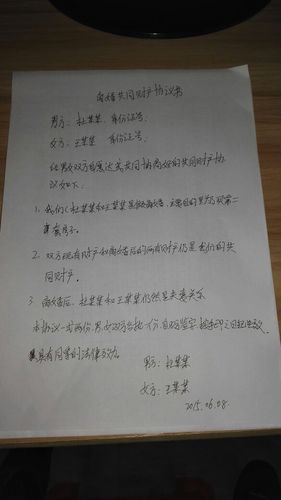 离婚共同财产协议书
男方：杜某某 身份证号：
女方：王某某 身份证号：
经男女双方自愿达成共同协商好的共同财产协
议如下：
1、我们（杜某某和王某某是假离婚，主要目的是为了买第二
套房子。
2、双方现有财产和离婚后的所有财产仍是我们的共
同财产。
3、离婚后，杜某某和王某某仍然是夫妻关系
本协议一式两份，男女双方各执一份，自双方签字 之日起生效，
具有同等的法律效力
男方：杜某某
女方：王某某
2015.06.08.